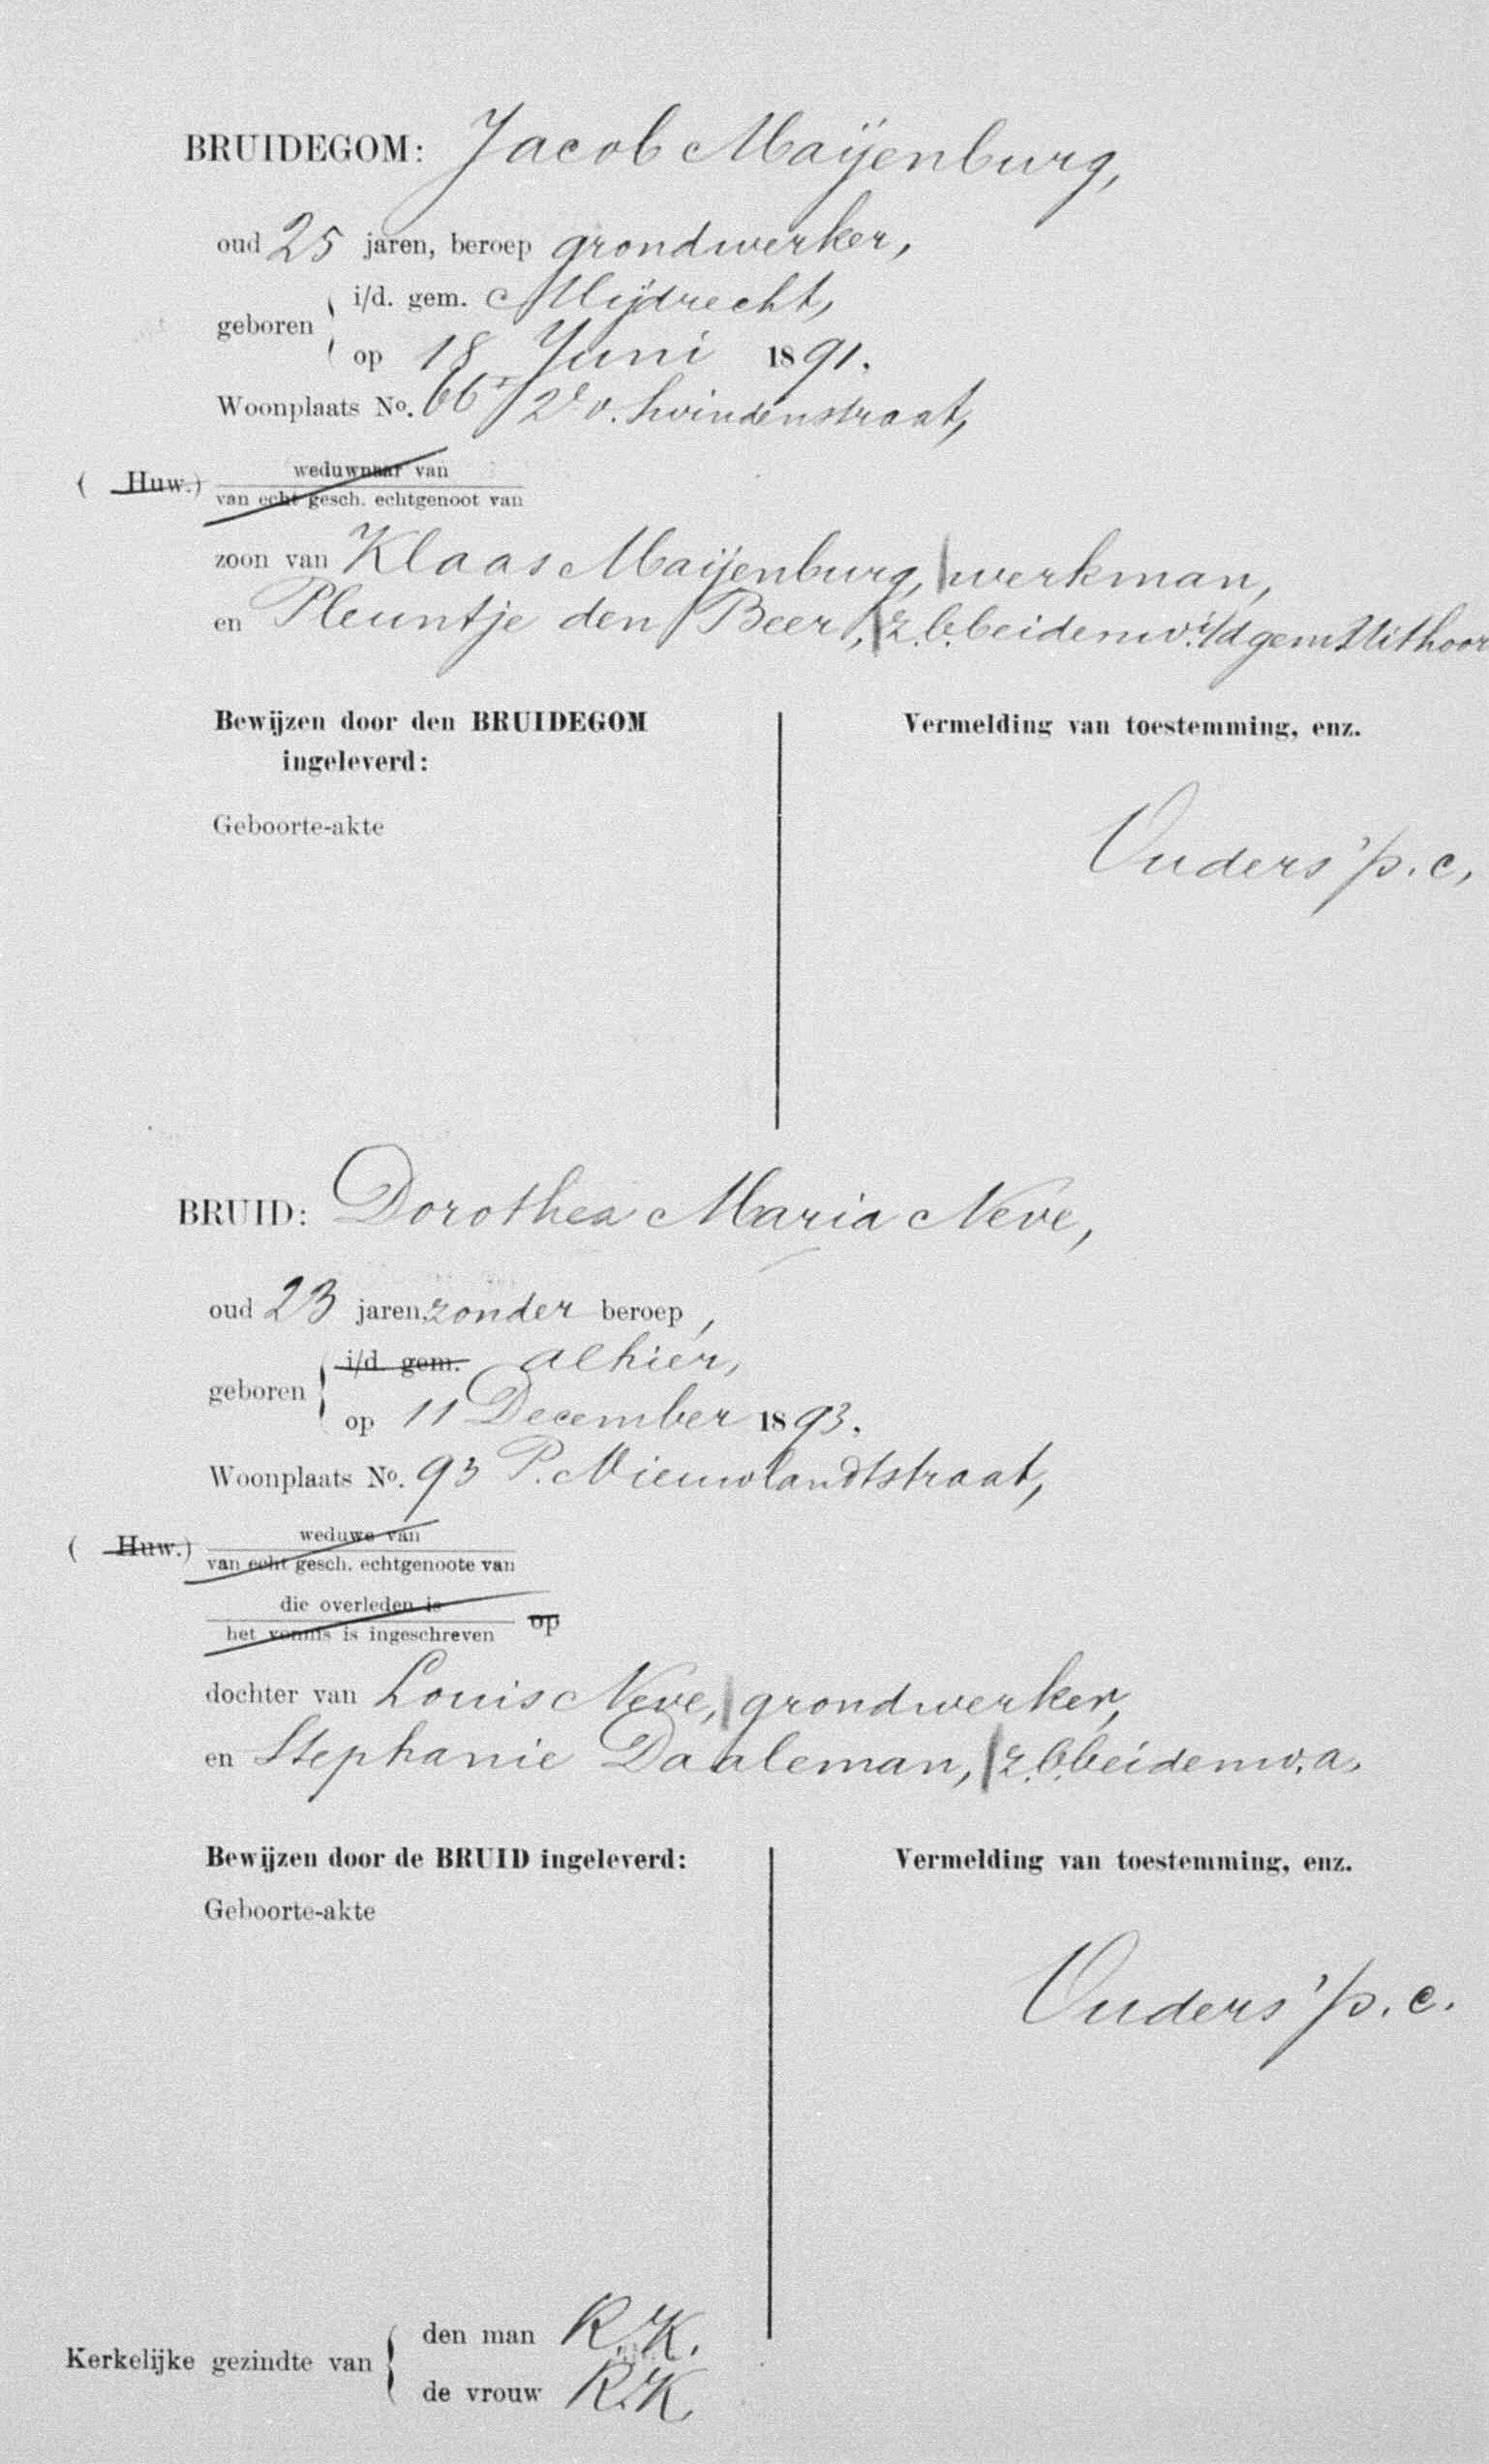 BRUIDEGOM: Jacob Maijenburg,
oud 25 jaren, beroep grondwerker,
geboren i/d. gem. Mijdrecht,
op 18 Juni 1891.
Woonplaats No. 66 I 2e v. Swindenstraat,
( Huw.) weduwnaar van
van echt gesch. echtgenoot van
zoon van Klaas Maijenburg, werkman,
en Pleuntje den Beer, z.b. beiden w. i/d gem Uithoor
Bewijzen door den BRUIDEGOM
ingeleverd:
Geboorte-akte
Vermelding van toestemming, enz.
Ouders p.c.
BRUID: Dorothea Maria Neve,
oud 23 jaren, zonder beroep,
geboren i/d gem. alhier,
op 11 December 1893.
Woonplaats No. 93 P. Nieuwlandtstraat,
( Huw.) weduwe van
van echt gesch. echtgenoote van
die overleden is
het vonnis is ingeschreven op
dochter van Louis Neve, grondwerker,
en Stephanie Daaleman, z.b. beiden w.a.
Bewijzen door de BRUID ingeleverd:
Geboorte-akte
Vermelding van toestemming, enz.
Ouders p.c.
Kerkelijke gezindte van den man R.K.
de vrouw R.K.